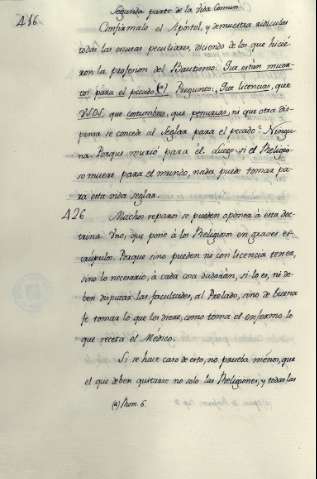 416
Segunda parte de la Vida Comun.
Confirmalo el Apóstol, y demuestra ridiculas
todas las escusas peculiares, diciendo de los que hicie
ron la profesion del Bautismo: Que estan muer
tos para el pecado (a). Pregunto: Que licencias, que
usos, que costumbre, que penurias, ni que otra dis
pensa se concede al Seglar para el pecado? Ningu
na. Porque murió para el. Luego si el Religio
so muere para el mundo, nada puede tomar pa
ra esta vida seglar.
426 Muchos reparos se pueden oponer à ésta doc
trina. Uno, que pone à los Religiosos en graves es
crupulos. Porque sino pueden ni con licencia tener,
sino lo necesario, à cada cosa dudarán, si lo es, ni de
ben disputar las facultades, al Prelado, sino de buena
fe tomar lo que les diere, como toma el enfermo lo
que receta el Médico.
Si se hace caso de esto, no prueba menos, que
el que deben quitarse no solo las Religiones, y todas las
(a) Rom. 6.